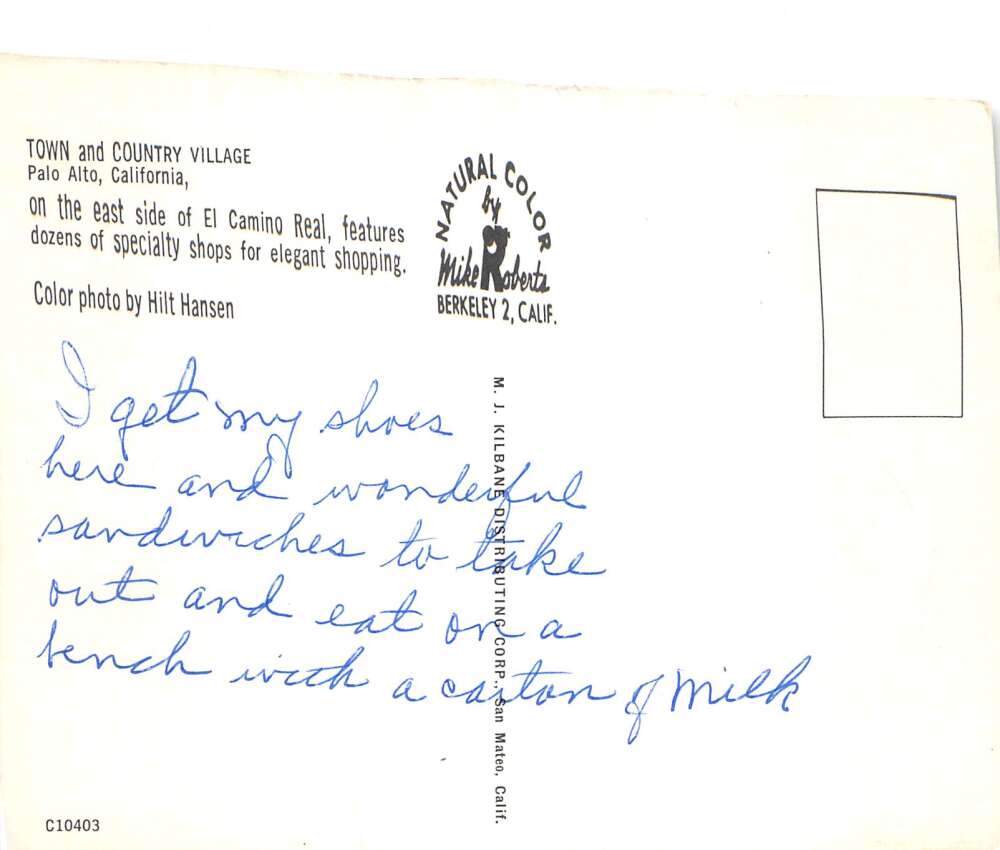 TOWN and COUNTRY VILLAGE
Palo Alto, California,
on the east side of El Camino Real, features
dozens of specialty shops for elegant shopping.
Color photo by Hilt Hansen
NATURAL COLOR
by
Mike Roberts
BERKELEY 2, CALIF.
M. J. KILBANE DISTRIBUTING CORP., San Mateo, Calif.
I get my shoes
here and wonderful
sandwiches to take
out and eat on a
bench with a carton of milk
C10403